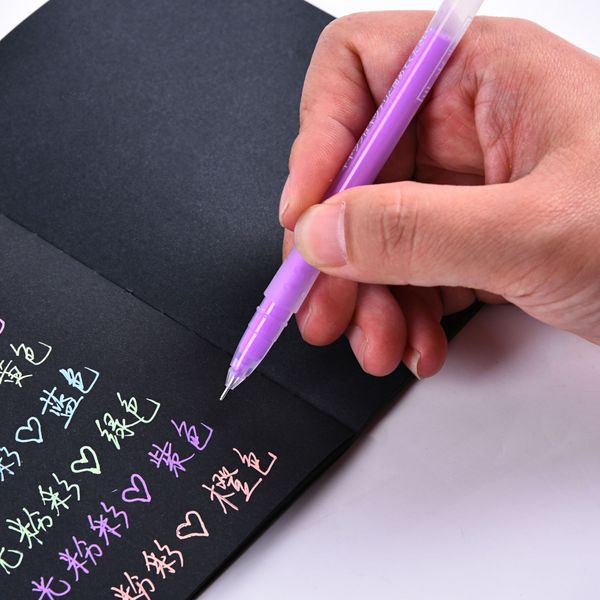 黄色
彩♡蓝色
光粉彩♡绿色
光粉彩♡紫色
粉彩♡橙色